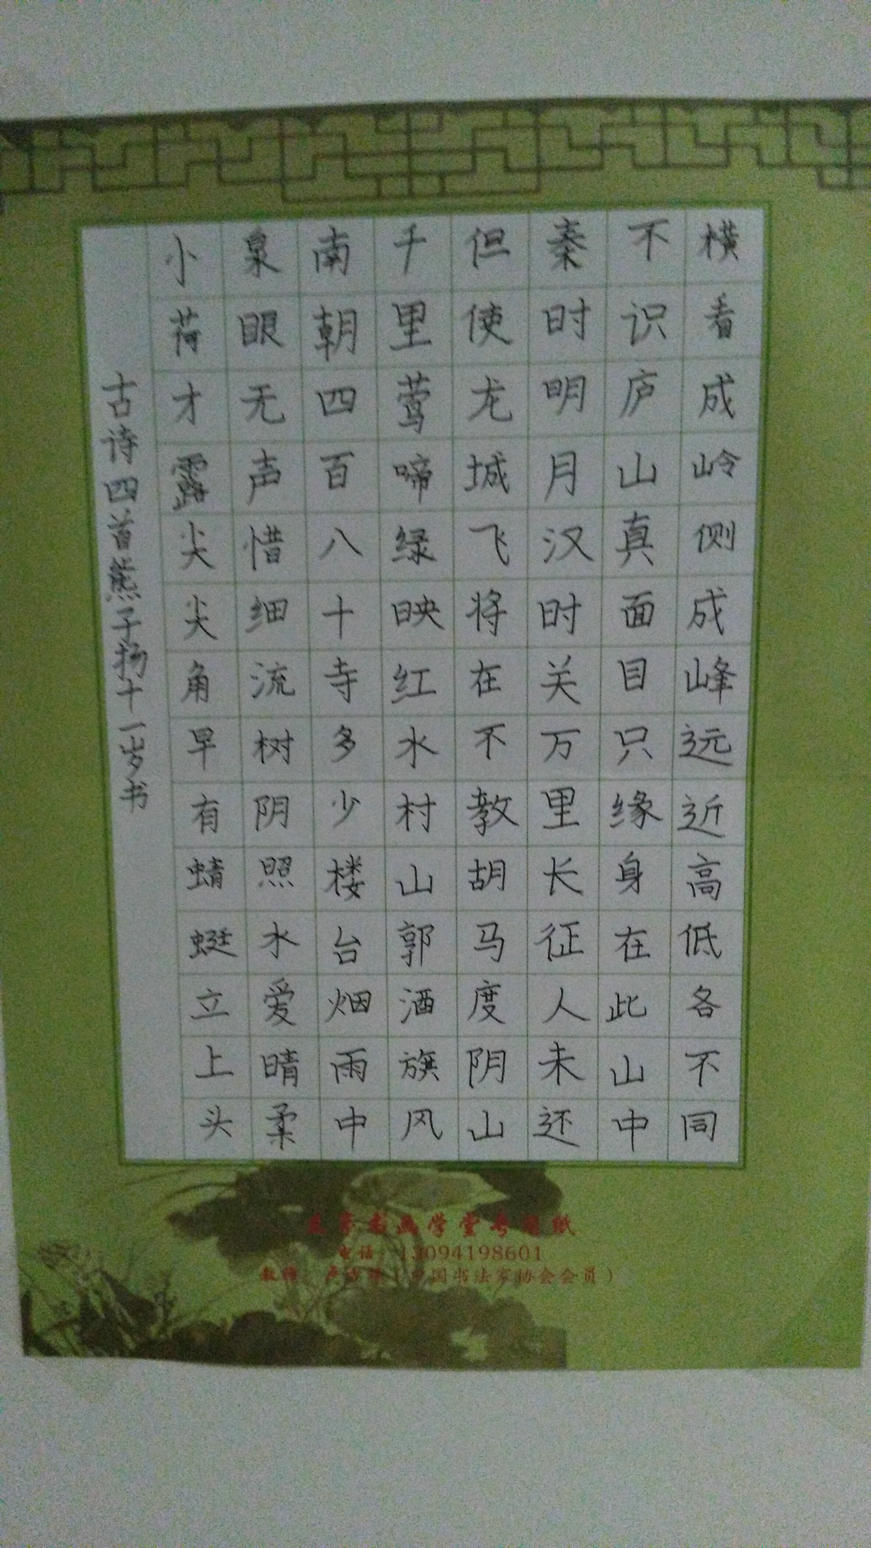 横看成岭侧成峰远近高低各不同
不识庐山真面目只缘身在此山中
秦时明月汉时关万里长征人未还
但使龙城飞将在不教胡马度阴山
千里莺啼绿映红水村山郭酒旗风
南朝四百八十寺多少楼台烟雨中
泉眼无声惜细流树阴照水爱晴柔
小荷才露尖尖角早有蜻蜓立上头
古诗四首熊子扬十一岁书
书画学堂专用纸
电话：13094198601
中国书法家协会会员）